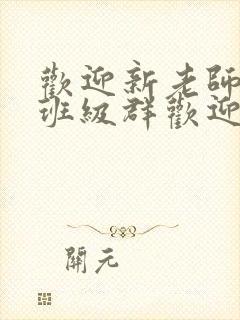 歡迎新老師
班級群歡迎
開元